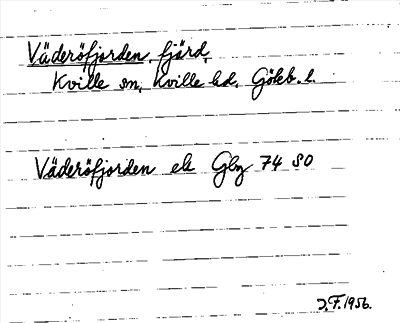 Väderöfjorden, fjärd,
Kville sn, Kville hd, Göteb. l.
Väderöfjorden ek Gbg 74 SO
J.F. 1956.